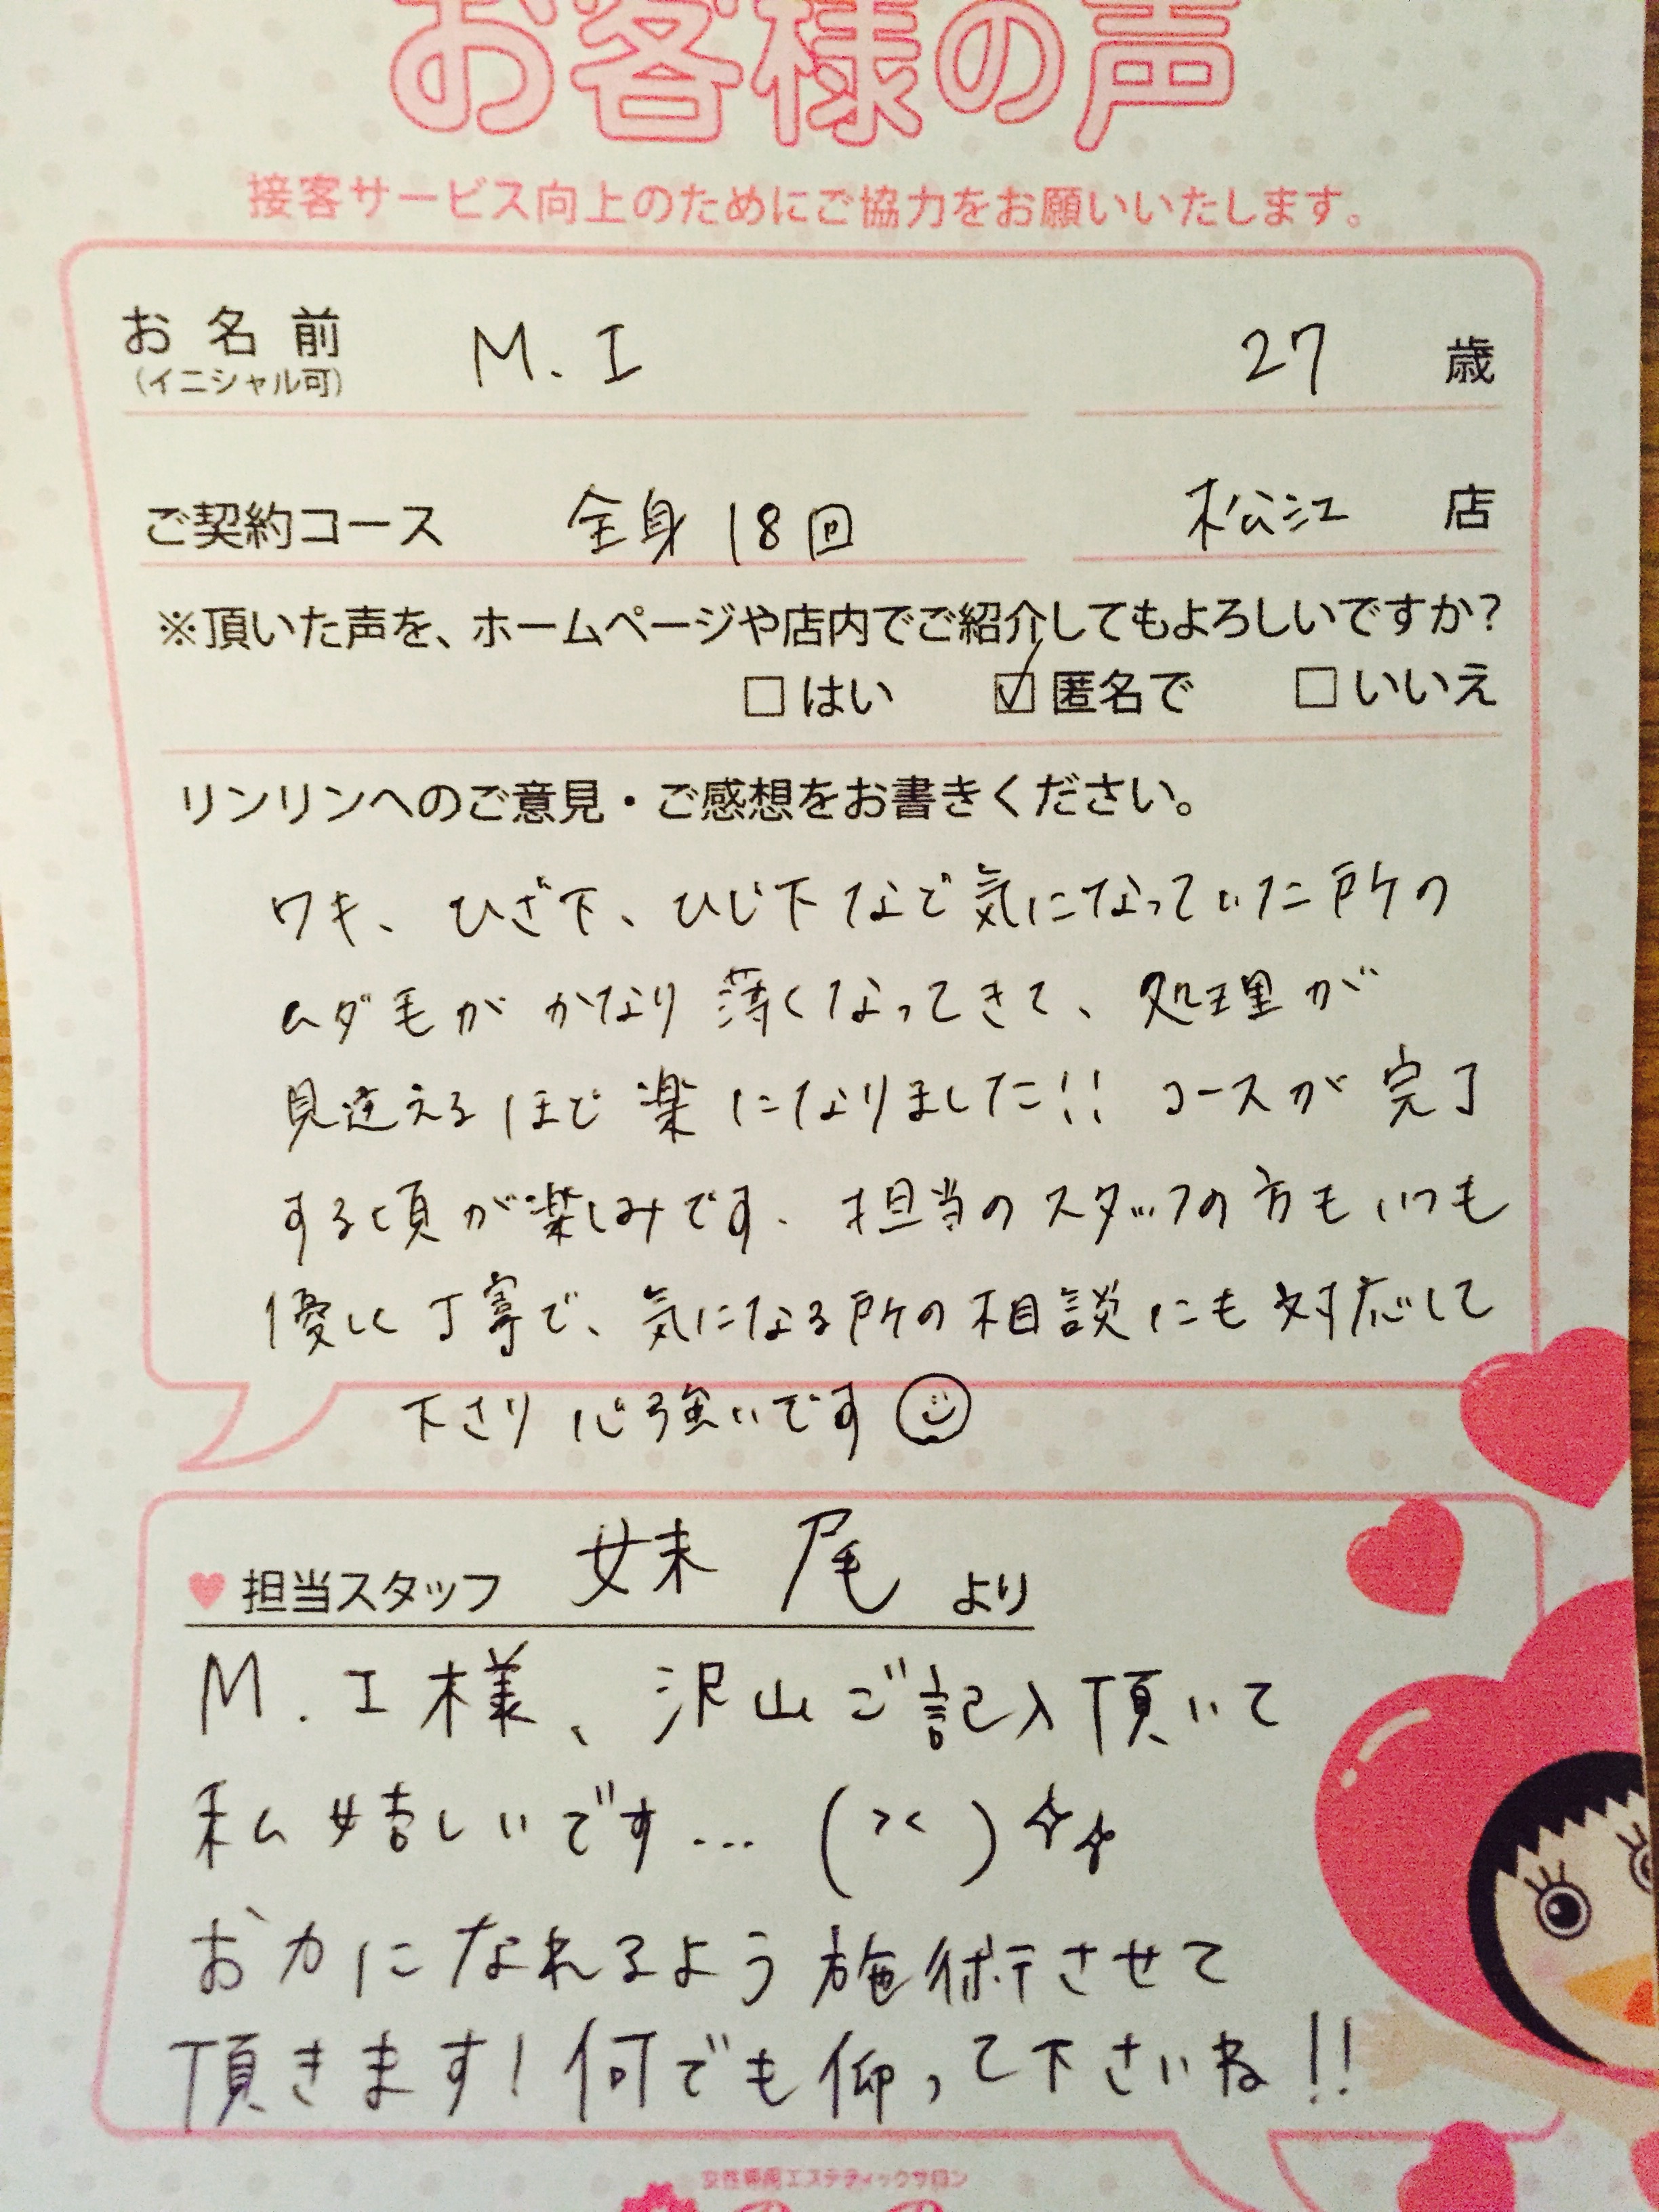 お客様の声
接客サービス向上のためにご協力をお願いいたします。
お名前 M. I 27 歳
(イニシャル可)
ご契約コース 全身18回 松江 店
※頂いた声を、ホームページや店内でご紹介してもよろしいですか?
□はい ☑匿名で □いいえ
リンリンへのご意見・ご感想をお書きください。
ワキ、ひざ下、ひじ下など気になっていた所の
ムダ毛がかなり薄くなってきて、処理が
見違えるほど楽になりました!! コースが完了
する頃が楽しみです。担当のスタッフの方もいつも
優しく丁寧で、気になる所の相談にも対応して
下さり心強いです
♥担当スタッフ 妹尾 より
M. I様、沢山ご記入頂いて
私嬉しいです…(><)
お力になれるよう施術させて
頂きます!何でも仰って下さいね!!
女性専用エステティックサロン